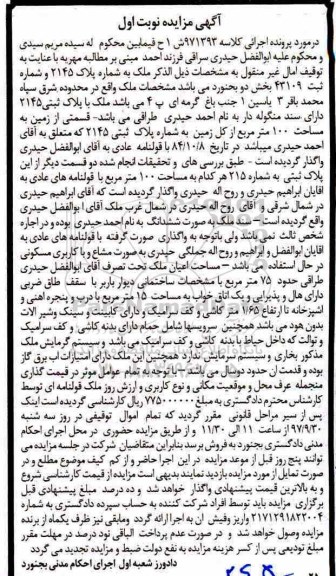 آگهی مزایده نوبت اول
درمورد پرونده اجرائی کلاسه ۹۷۱۳۹۳ش ۱ ح فیمابین محکوم له سیده مریم سیدی
و محکوم علیه ابوالفضل حیدری سراقی فرزند احمد مبنی بر مطالبه مهریه با عنایت به
توقیف امال غیر منقول به مشخصات ذیل الذکر ملک به شماره پلاک ۲۱۴۵ و شماره
ثبت ۴۳۱۰۹ بخش دو بجنورد می باشد مشخصات ملک واقع در محدوده شرق سپاه
محمد باقر ۳ یاسین ۱ جنب باغ گرمه ای پ ۴ می باشد ملک با پلاک ثبتی۲۱۴۵
دارای سند منگوله دار به نام احمد حیدری طراقی می باشد- قسمتی از زمین به
مساحت ۱۰۰ متر مربع از کل زمین به شماره پلاک ثبتی ۲۱۴۵ که متعلق به آقای
احمد حیدری میباشد در تاریخ ۸۴/۱۰/۸ با قولنامه عادی به آقای ابوالفضل حیدری
واگذار گردیده است - طبق بررسی های و تحقیقات انجام شده دو قسمت دیگر از این
پلاک ثبتی به شماره ۲۱۵ هر کدام به مساحت ۱۰۰ متر مربع با قولنامه های عادی به
اقایان ابراهیم حیدری و روح اله حیدری واگذار گردیده است که آقای ابراهیم حیدری
در شمال شرقی و آقای روح اله حیدری در شمال غرب ملک آقای ابوالفضل حیدری
واقع گردیده است - ملک به صورت ششدانگ به نام احمد حیدری بوده و در اجاره
شخص ثالث نمی باشد ولی باتوجه به واگذاری صورت گرفته با قولنامه های عادی به
اقایان ابوالفضل و ابراهیم و روح اله جملگی حیدری به صورت مشاع و با کاربری مسکونی
در حال استفاده می باشد - مساحت اعیان ملک تحت تصرف آقای ابوالفضل حیدری
طراقی حدود ۷۵ متر مربع با مشخصات ساختمانی دیوار باربر با سقف طاق ضربی
دارای هال و پذیرایی و یک اتاق خواب به مساحت ۱۵ متر مربع با درب و پنجره اهنی و
اشپزخانه تا ارتفاع ۱/۶۵ متر کاشی و کف سرامیک و دارای کابینت و سینک وشیر الات
بدون هود می باشد همچنین سرویسها شامل حمام دارای بدنه کاشی و کف سرامیک
و توالت که داخل حیاط با بدنه کاشی و کف سرامیک می باشد و سیستم گرمایش ملک
مذکور بخاری و سیستم سرمایش ندارد همچنین این ملک دارای امتیازات اب برق گاز
بوده و قدمت ان حدود دوسال می باشد- با توجه به تمام عوامل موثر در قیمت گذاری
منجمله عرف محل و موقعیت مکانی و نوع کاربری و ارزش روز ملک قولنامه ای توسط
کارشناس محترم دادگستری به مبلغ ۷۷۵۰۰۰۰۰۰ ریال کارشناسی گردیده است اینک
پس از سیر مراحل قانونی مقرر گردید که تمام اموال توقیفی در روز سه شنبه
۹۷/۹/۳۰ از ساعت ۱۱ الی ۱۱/۳۰ و از طریق مزایده حضوری در محل اجرای احکام
مدنی دادگستری بجنورد به فروش برسد بنابراین متقاضیان شرکت در جلسه مزایده می
توانند پنج روز قبل از موعد مزایده در این اجرا حاضر و از کم کیف موضوع مطلع و در
صورت تمایل از مورد مزایده بازدید نمایند بدیهی است مزایده از قیمت کارشناسی شروع
و به بالاترین قیمت پیشنهادی واگذار خواهد شد و ده درصد مبلغ پیشنهادی قبل
برگزاری مزایده باید توسط افراد شرکت کننده به حساب سپرده دادگستری به شماره
۲۱۷۱۲۹۱۸۲۲۰۰۴ واریز وفیش ان به اجرا ارائه گردد ومابقی نیز ظرف یکماه از برنده
مزایده وصول خواهد شد و در صورت عدم پرداخت الباقی نود درصد در مهلت مقرر
مبلغ تودیعی پس از کسر هزینه مزایده به نفع دولت ضبط و مزایده تجدید می گردد
دادورز شعبه اول اجرای احکام مدنی بجنورد